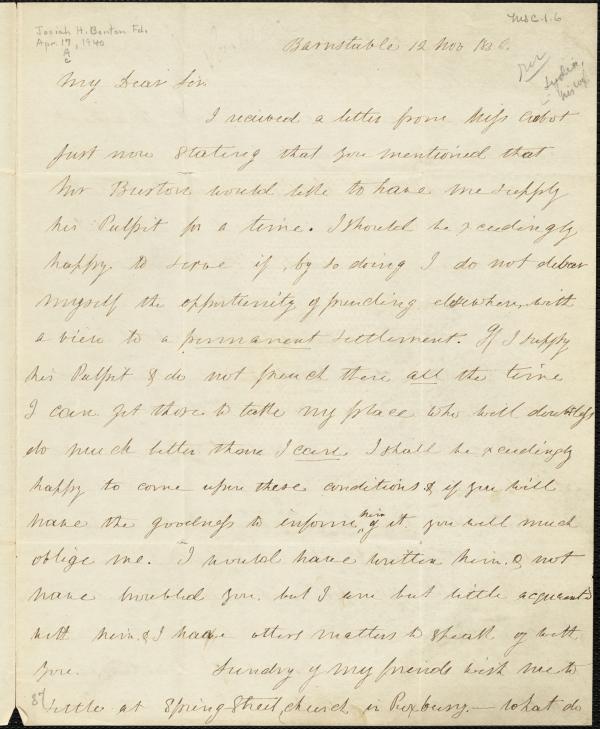 Ms C.1.6
Josiah H. Benton Fd.
Apr. 17, 1940
A
C
Barnstable 12 Nov 1836.
per
Lydia,
his wf.
My Dear Sir.
I recieved a letter from Miss Cabot
just now stating that you mentioned that
Mr Burton would like to have me supply
his Pulpit for a time. I should be exceedingly
happy to serve if, by so doing I do not debar
myself the opportunity of preaching elsewhere, with
a view to a permanent settlement. If I supply
his Pulpit & do not preach there all the time
I can get those to take my place who will doubtless
do much better than I can. I shall be exceedingly
happy to come upon these conditions & if you will
have the goodness to inform him of it you will much
oblige me. I would have written him. & not
have troubled you. but I am but little acquainted
with him. & I have other matters to speak of with
you. Sundry of my friends wish me to
settle at Spring-Street, church in Roxbury. — What do
87